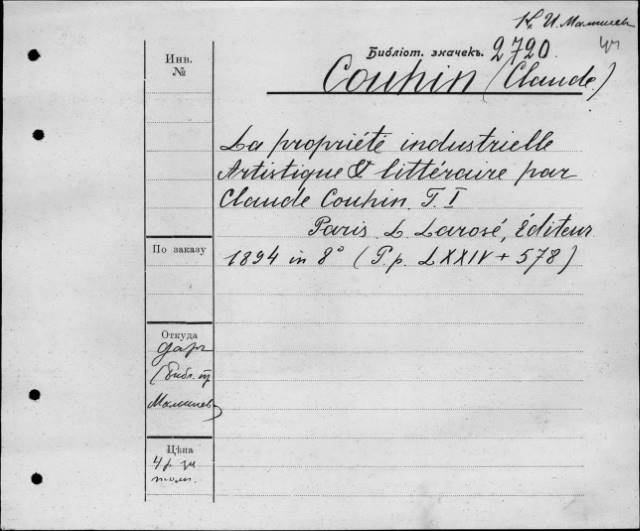 К. И. Малышев
Библіот. значекъ. 2720.
Couhin (Claude)
Инв.
№
La propriété industrielle
Artistique & littéraire par
Claude Couhin. T. I
Paris. L. Larosé, Éditeur
1894 in 8° (P.p. LXXIV + 578)
По заказу
Откуда
даръ
(Библ.
Малышева)
Цѣна
4 р. за
томъ.